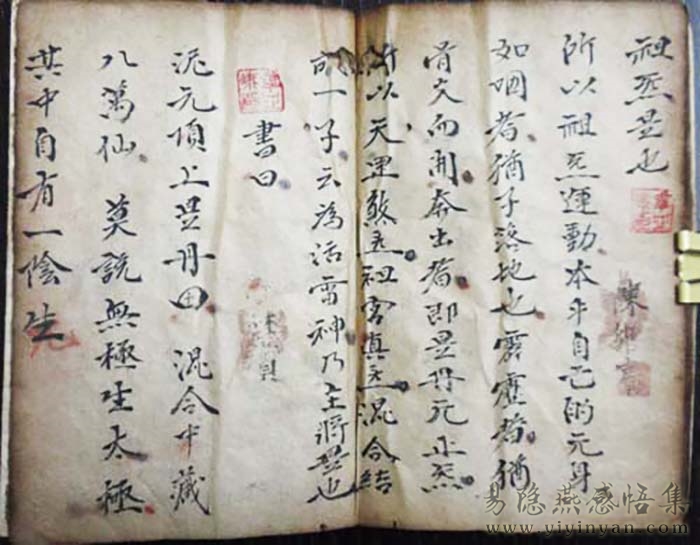 祖炁是也
所以祖炁運動本乎自己的元身
如咽者猶子落地也霹靂者猶
胃文而開奔出者即是丹元正炁
所以天運煞炁祖宮真炁混合結
成一子云為活雷神乃主將是也
書曰
泥元頂上是丹田 混合中藏
八萬仙 莫說無極生太極
其中自有一陰生
陳
易隐燕感悟集
www.yiyinyan.com